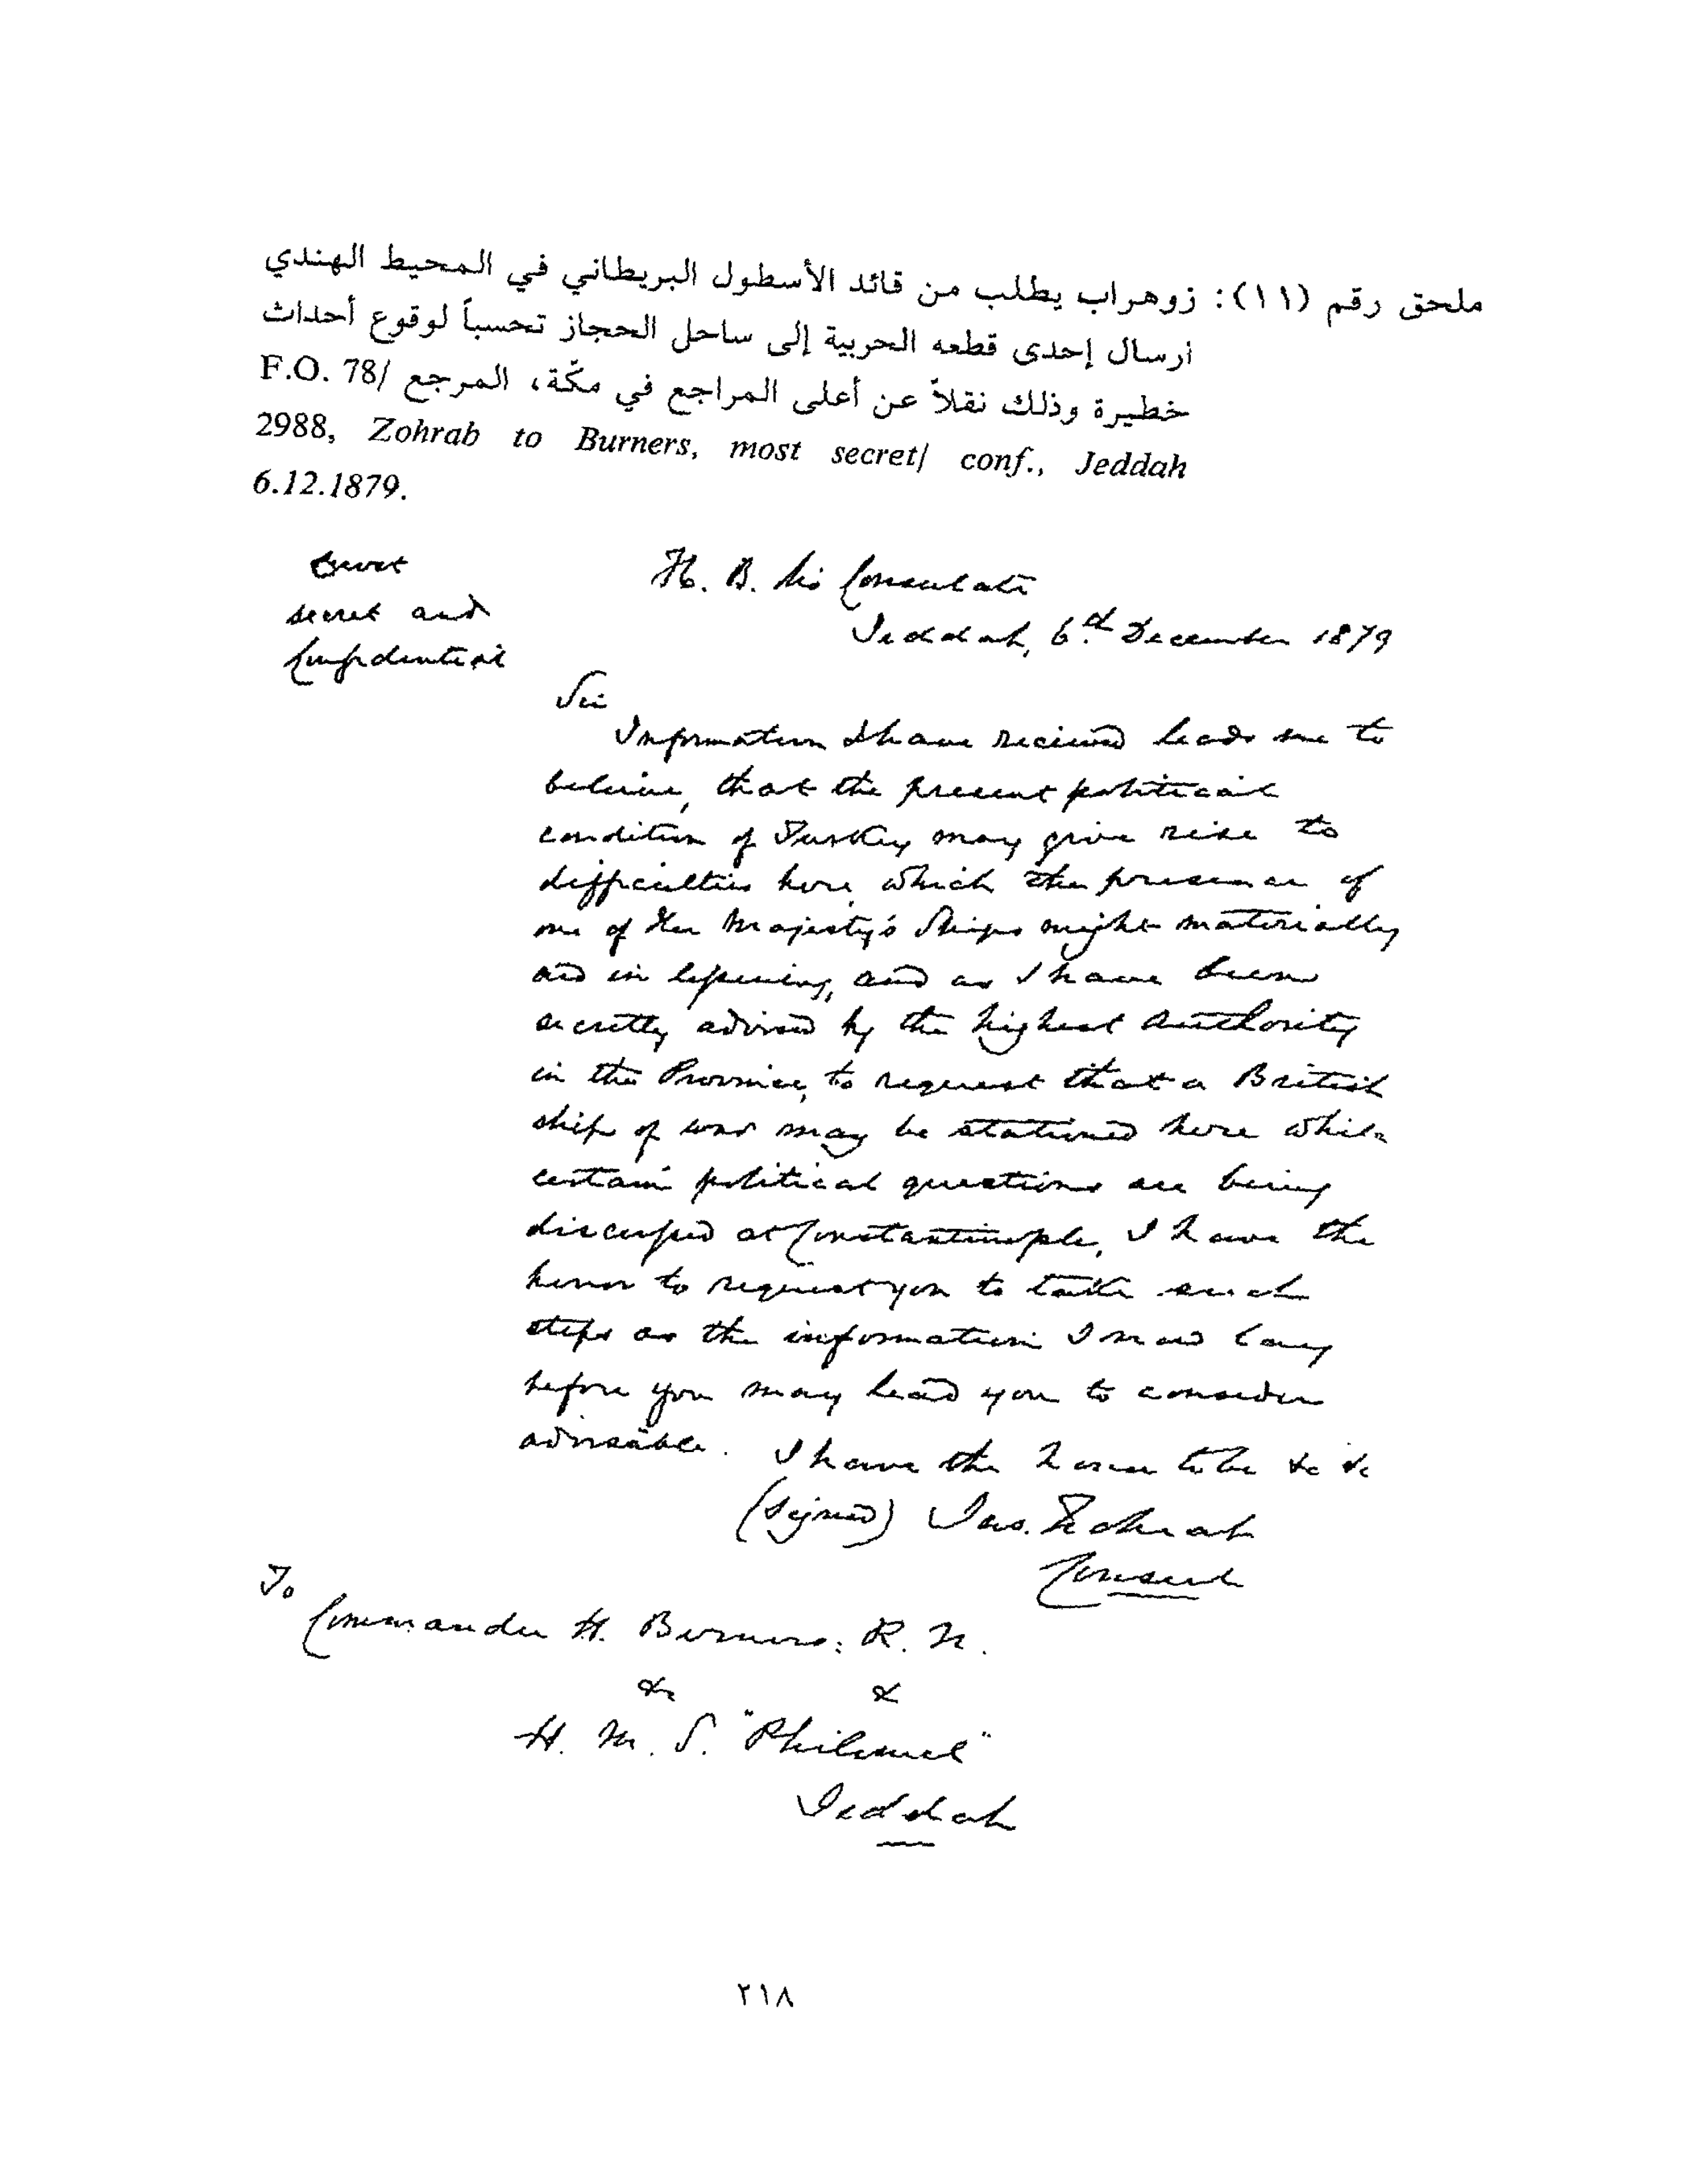 ملحق رقم (١١): زوهراب يطلب من قائد الأسطول البريطاني في المحيط الهندي
ارسال إحدى قطعه الحربية إلى ساحل الحجاز تحسباً لوقوع أحداث
خطيرة وذلك نقلاً عن أعلى المراجع في مكّة، المرجع F.O. 78/
2988, Zohrab to Burners, most secret/ conf., Jeddah
6.12.1879.
secret and
Confidential
H. B. M's Consulate
Jeddah, 6th December 1879
Sir
Information I have recieved leads me to
believe, that the present political
condition of Turkey may give rise to
difficulties here, which the presence of
one of Her Majesty's Ships might materially
aid in lessening, and as I have been
secretly advised by the highest Authority
in the Province, to request that a British
ship of war may be stationed here while
certain political questions are being
discussed at Constantinople, I have the
honor to request you to take such
steps as the information I now lay
before you may lead you to consider
advisable. I have the honor to be &c &c
(signed) Jas. Zohrab
Consul
To
Commander H. Berners: R. N.
&c &
H. M. S. "Philomel"
Jeddah
٢١٨